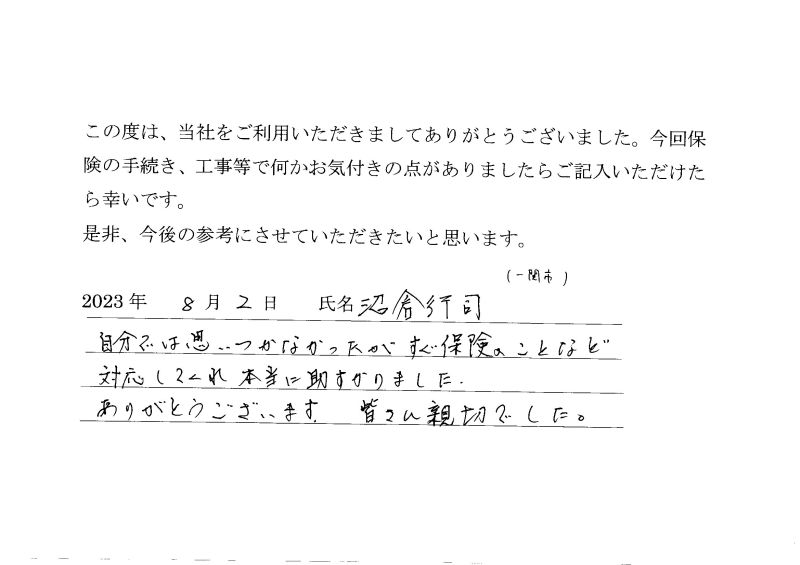 この度は、当社をご利用いただきましてありがとうございました。今回保
険の手続き、工事等で何かお気付きの点がありましたらご記入いただけた
ら幸いです。
是非、今後の参考にさせていただきたいと思います。
(一関市)
2023年 8月2日 氏名 沼倉行司
自分では思いつかなかったがすぐ保険のことなど
対応してくれ本当に助すかりました.
ありがとうございます. 皆さん親切でした。